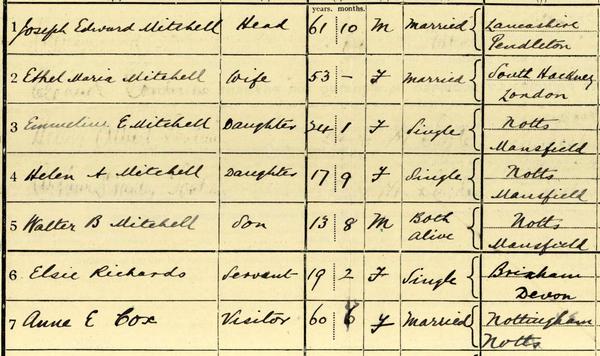 years. months.
1 Joseph Edward Mitchell Head 61 10 M Married Lancashire
Pendleton
2 Ethel Maria Mitchell Wife 53 – F Married South Hackney
London
3 Emmeline E Mitchell Daughter 24 1 F Single Notts
Mansfield
4 Helen A Mitchell Daughter 17 9 F Single Notts
Mansfield
5 Walter B Mitchell Son 13 8 M Both Alive Notts
Mansfield
6 Elsie Richards Servant 19 2 F Single Brixham
Devon
7 Anne E Cox Visitor 60 F Married Nottingham
Notts